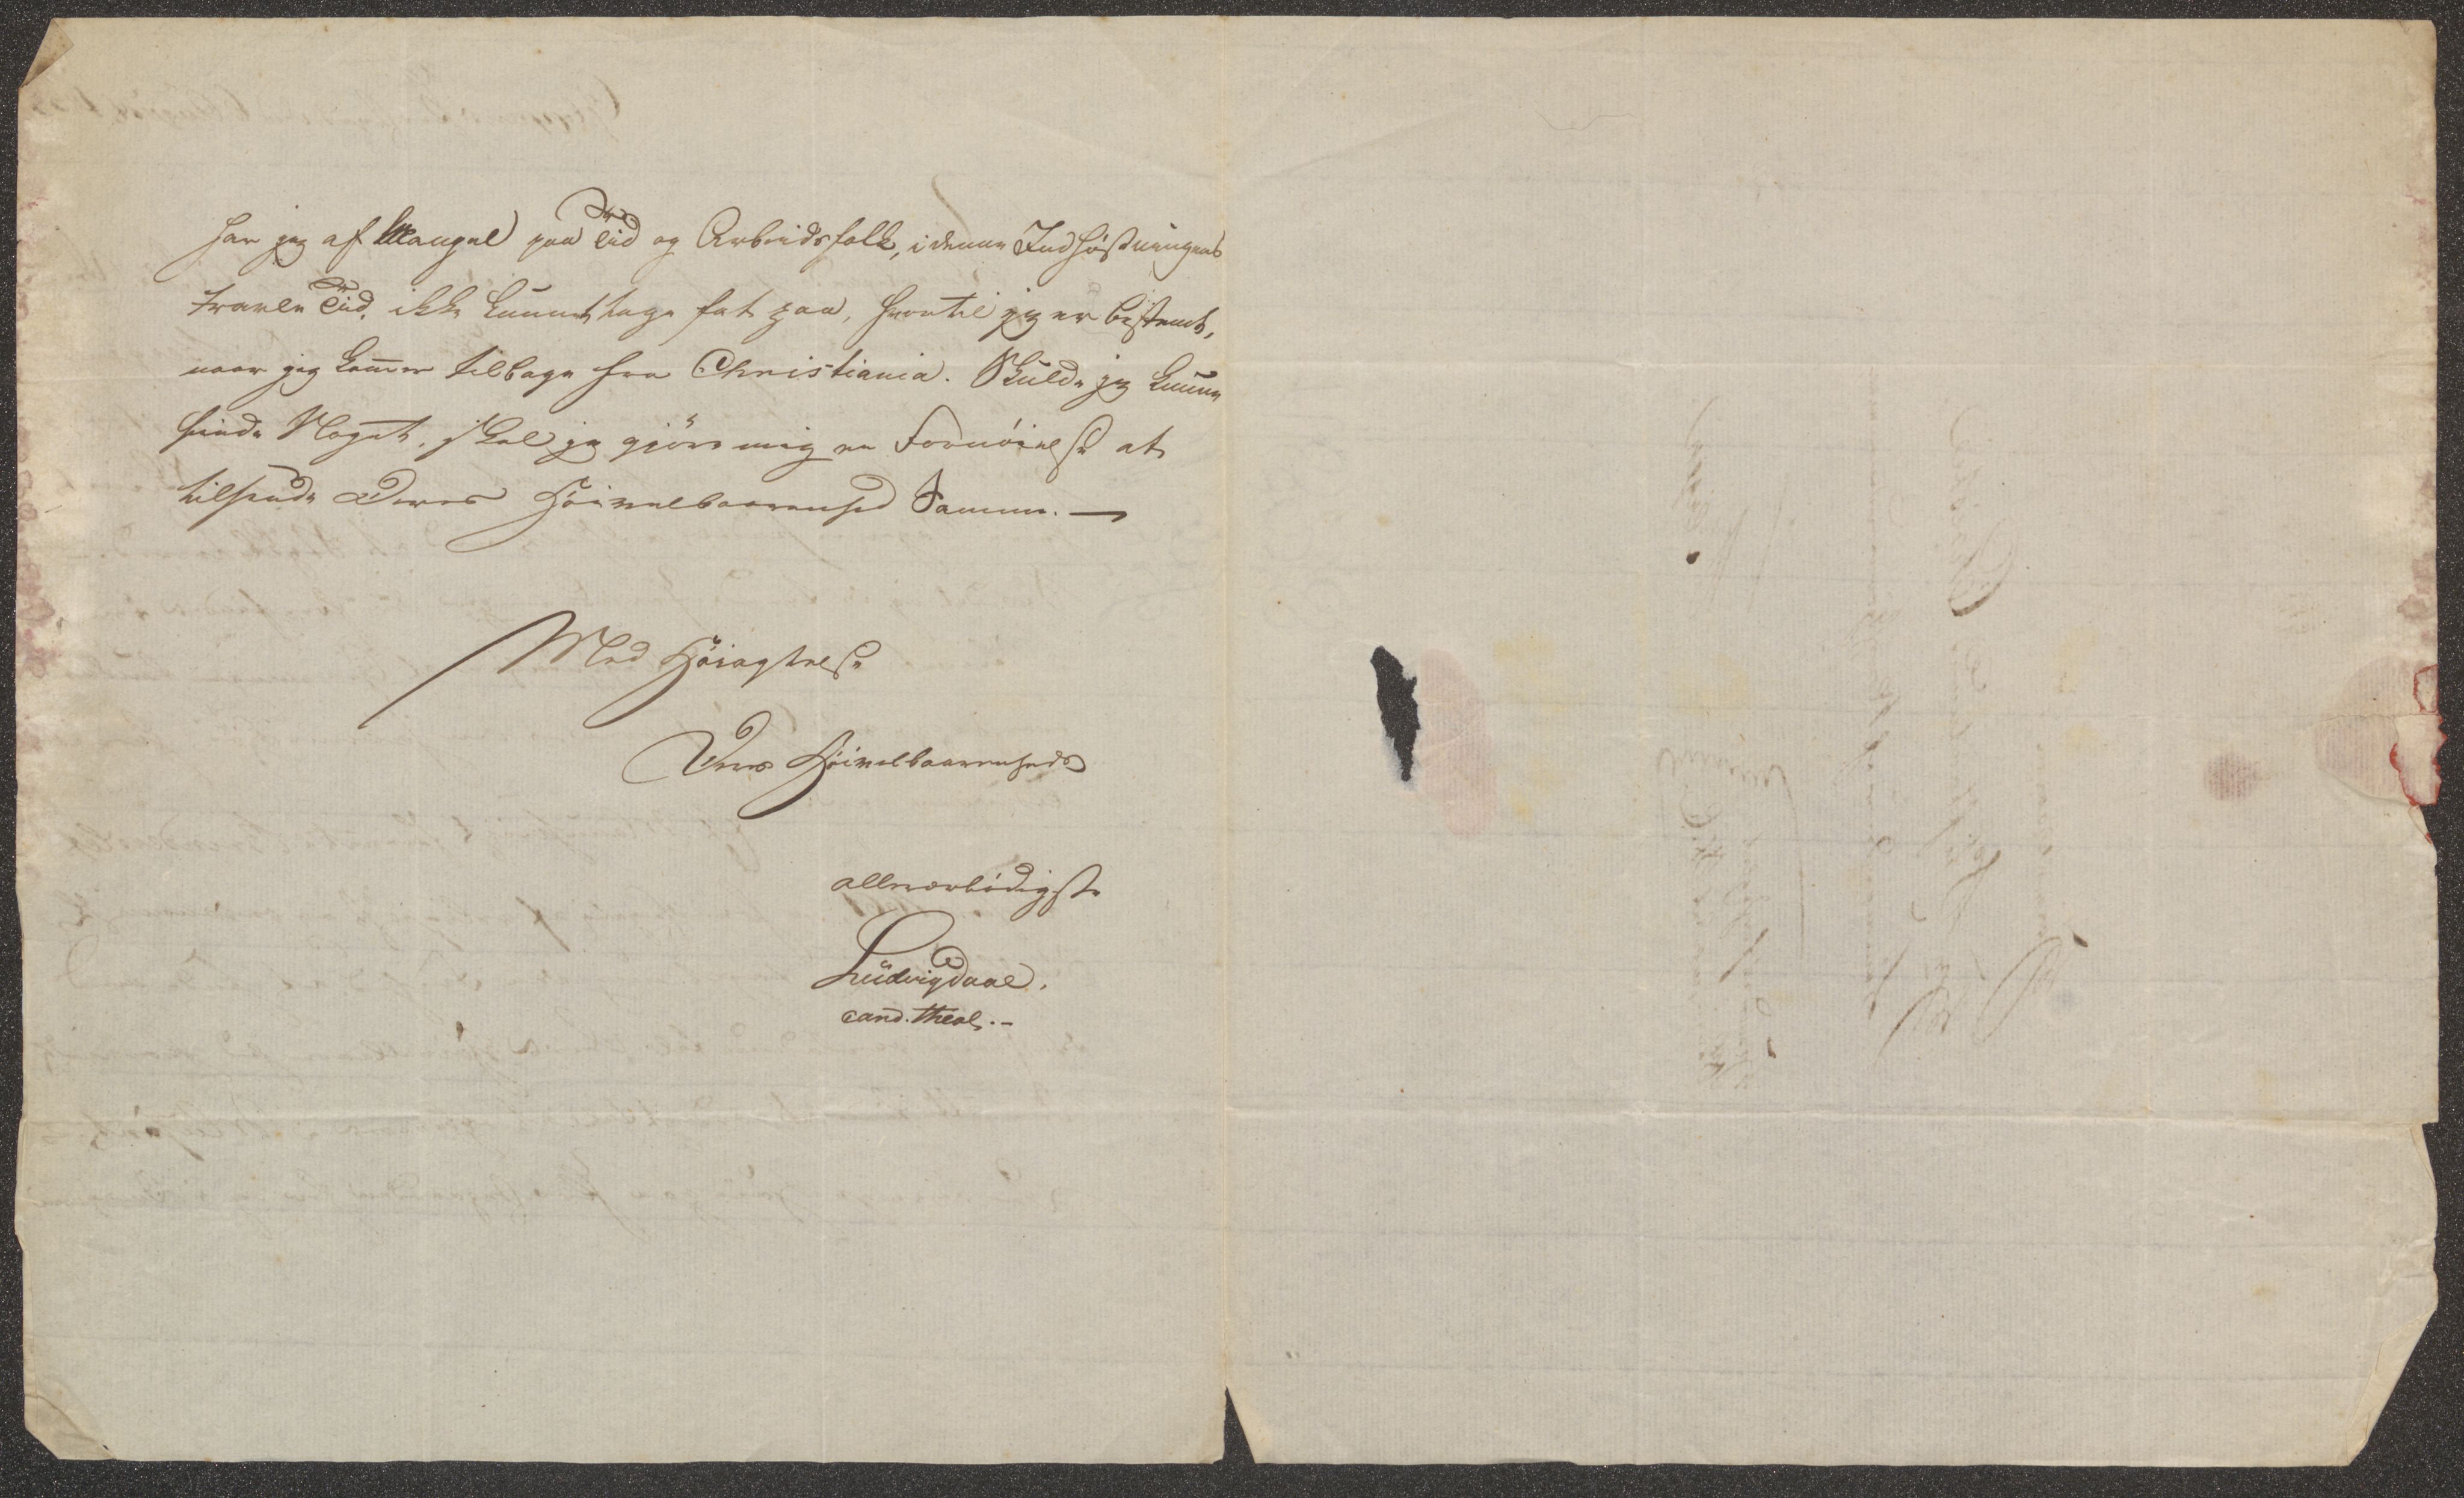 har jeg af Mangel paa Tid og Arbeidsfolk, i denne Indhöstningens
travle Tid, ikke kunnet tage fat paa, hvortil jeg er bestemt,
naar jeg kom̄er tilbage fra Christiania. Skulde jeg kunne
finde Noget, skal jeg gjöre mig en Fornöielse at
tilsende Deres Höivelbaarenhed Samme. —
Med Höiagtelse
Deres Höivelbaarenheds
allerærbödigste
Ludvig Daae.
cand. theol. -